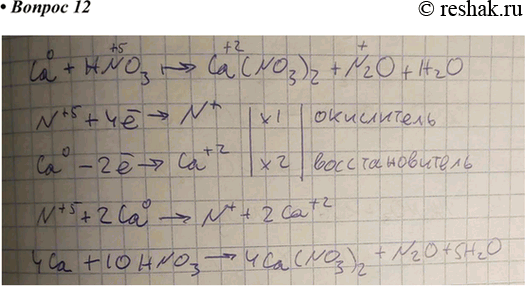 • Вопрос 12
© reshak.ru
Ca⁰ + HN⁺⁵O₃ → Ca⁺²(NO₃)₂ + N⁺₂O + H₂O
N⁺⁵ + 4ē → N⁺ | x1 | окислитель
Ca⁰ − 2ē → Ca⁺² | x2 | восстановитель
N⁺⁵ + 2Ca⁰ → N⁺ + 2Ca⁺²
4Ca + 10HNO₃ → 4Ca(NO₃)₂ + N₂O + 5H₂O